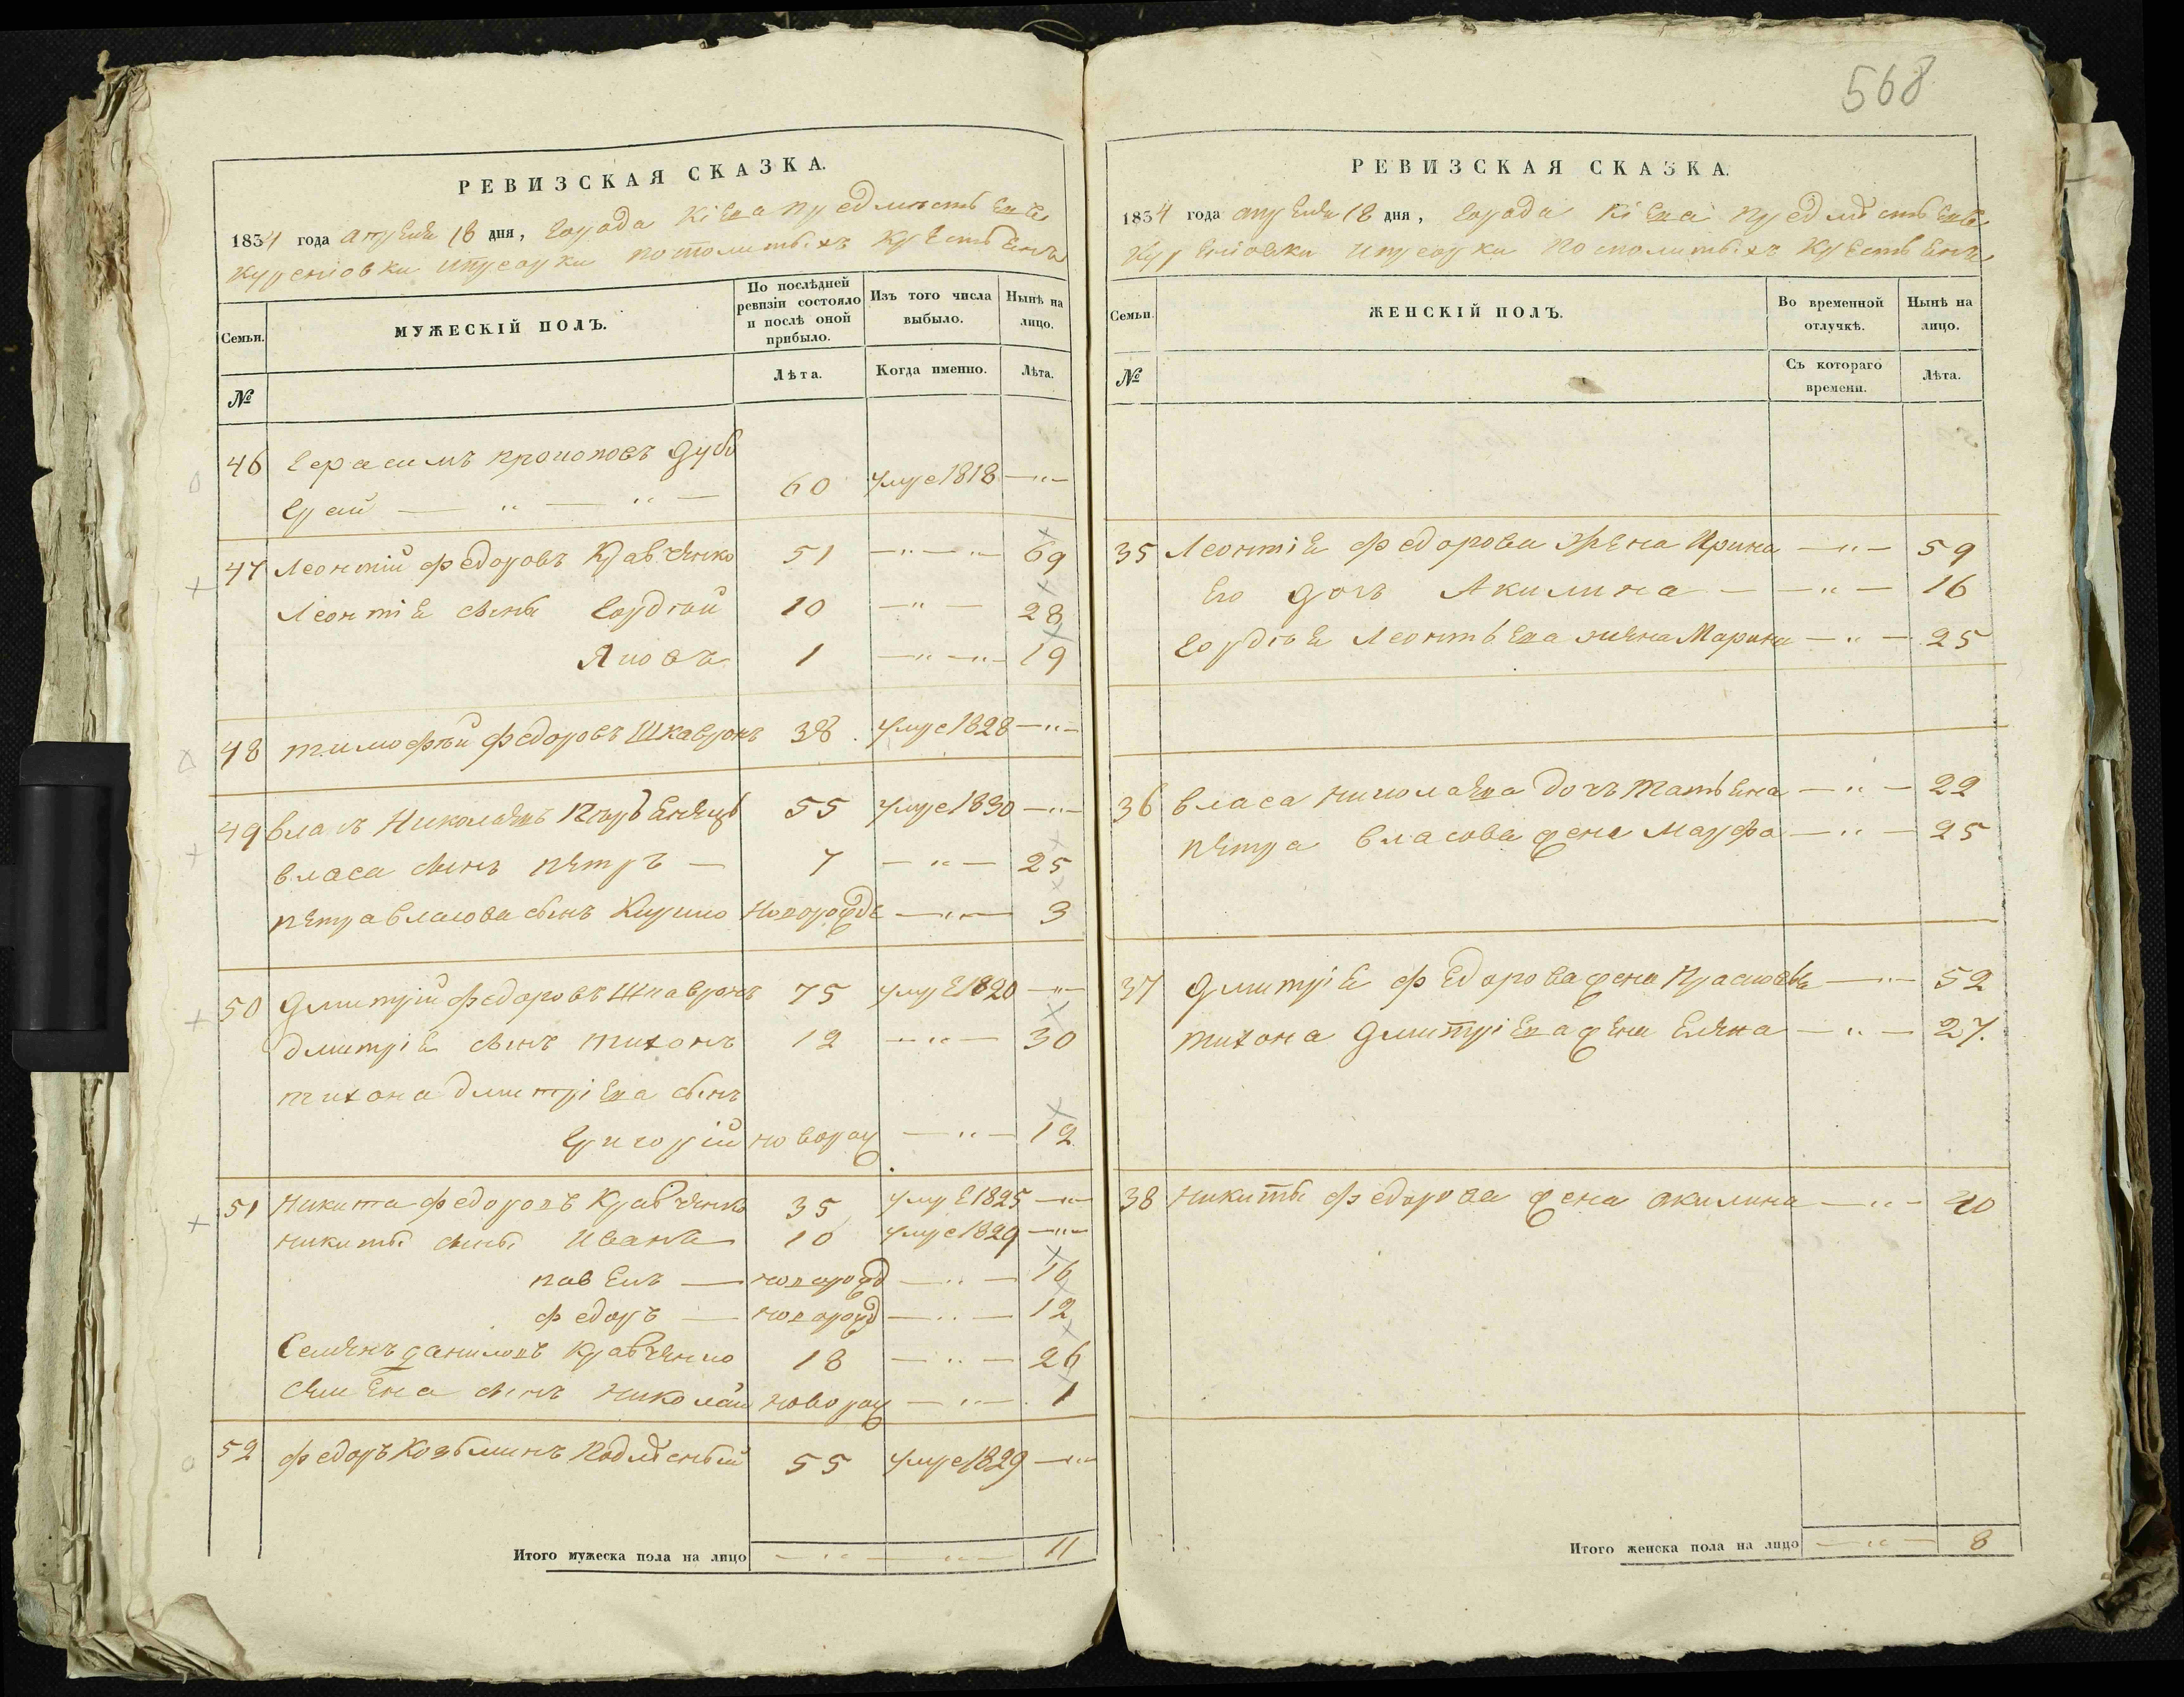 568
РЕВИЗСКАЯ СКАЗКА.
1834 года апреля 18 дня, города Кіева предместьева
Куреніовки и Присорки посполитыхъ крестьянъ
Семьи.
МУЖЕСКІЙ ПОЛЪ.
По послѣдней ревизіи состояло и послѣ оной прибыло.
Изъ того числа выбыло.
Нынѣ на лицо.
№
Лѣта.
Когда именно.
Лѣта.
46 Герасимъ Прокоповъ Дубо
грей — „ — „ — 60 умре 1818 — „ —
47 Леонтій Федоровъ Кравченко 51 — „ — „ — 69
Леонтіа сыны Гордій 10 — „ — 28
Яковъ 1 — „ — „ — 19
48 Тимофѣй Федоровъ Шкавронъ 38 умре 1828 — „ —
49 Власъ Николаевъ 55 умре 1830 — „ —
Власа сынъ Петръ — 7 — „ — 25
Петра Власова сынъ Кирило новорожде — „ — 3
50 Дмитрій Федоровъ Шкавронъ 75 умре 1820 — „ —
Дмитріа сынъ Тихонъ 12 — „ — 30
Тихона Дмитріева сынъ
Григорій новорож — „ — 12
51 Никита Федоровъ Кравченко 35 умре 1825 — „ —
Никиты сыны Иванъ 10 умре 1829 — „ —
Павелъ — новорожд — „ — 16
Федоръ — новорожд — „ — 12
Семенъ Даниловъ Кравченко 18 — „ — 26
Семена сынъ Николай новорож — „ — 1
52 Федоръ Козьминъ 55 умре 1829 — „ —
Итого мужеска пола на лицо — „ — — „ — 11
РЕВИЗСКАЯ СКАЗКА.
1834 года апреля 18 дня, города Кіева предместьева
Куреніовки и Присорки посполитыхъ крестьянъ
Семьи.
ЖЕНСКІЙ ПОЛЪ.
Во временной отлучкѣ.
Нынѣ на лицо.
№
Съ котораго времени.
Лѣта.
35 Леонтіа Федорова жена Ирина — „ — 59
Его дочъ Акилина — — „ — 16
Гордіа Леонтьева жена Марина — „ — 25
36 Власа Николаева дочъ Татьяна — „ — 22
Петра Власова жена Марфа — „ — 25
37 Дмитріа Федорова жена — „ — 52
Тихона Дмитріева жена Елена — „ — 27.
38 Никиты Федорова жена Акилина — „ — 40
Итого женска пола на лицо — „ — 8